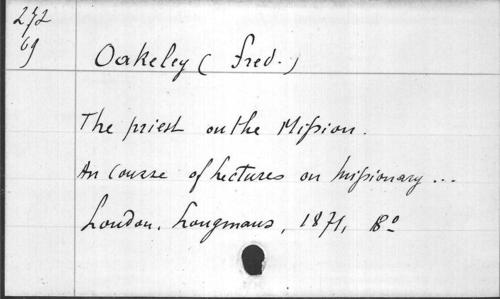 272
69
Oakeley (Fred.)
The priest on the Mission.
An Course of Lectures on Missionary ...
London, Longmans, 1871, 8º